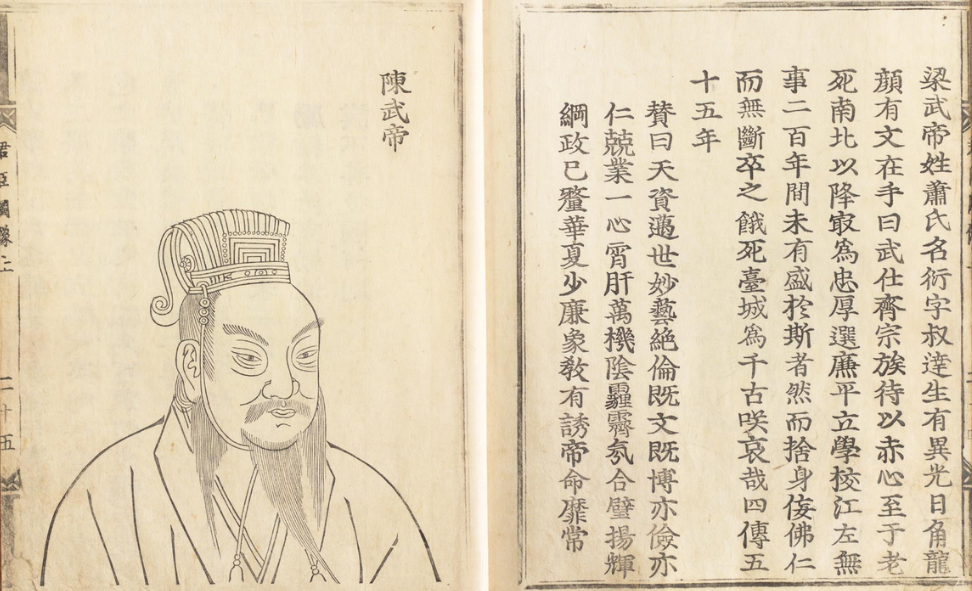 梁武帝姓蕭氏名衍字叔達生有異光日角龍
顔有文在手曰武仕齊宗族待以赤心至于老
死南北以降冣為忠厚選廉平立學校江左無
事二百年間未有盛於斯者然而捨身佞佛仁
而無斷卒之餓死臺城為千古咲哀哉四傳五
十五年
賛曰天資邁世妙藝絶倫既文既博亦儉亦
仁兢業一心宵肝萬機陰霾霽氛合璧揚輝
綱政已釐華夏少廉象教有誘帝命靡常
陳武帝
君臣圖像上
二十五